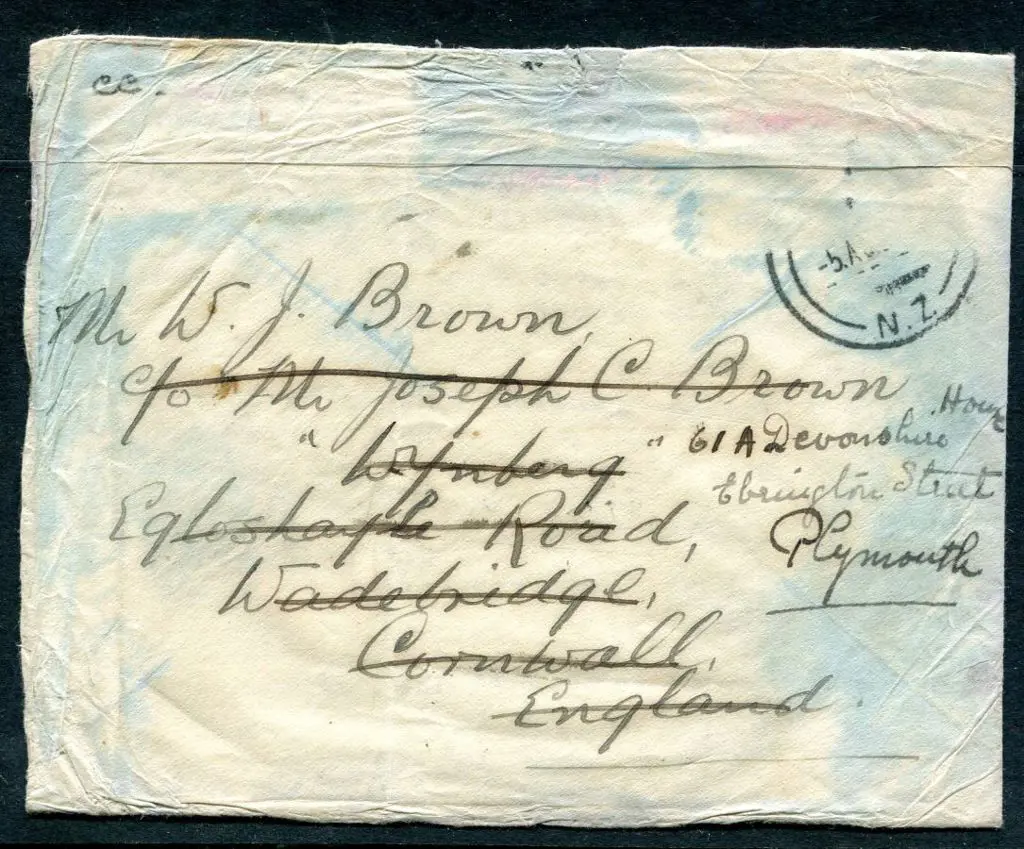 cc.
-5.A
N.Z.
Mr W. J. Brown,
c/o Mr Joseph C. Brown
"Wynberg"
Egloshayle Road,
Wadebridge,
Cornwall,
England.
61A Devonshire House
Ebrington Street
Plymouth